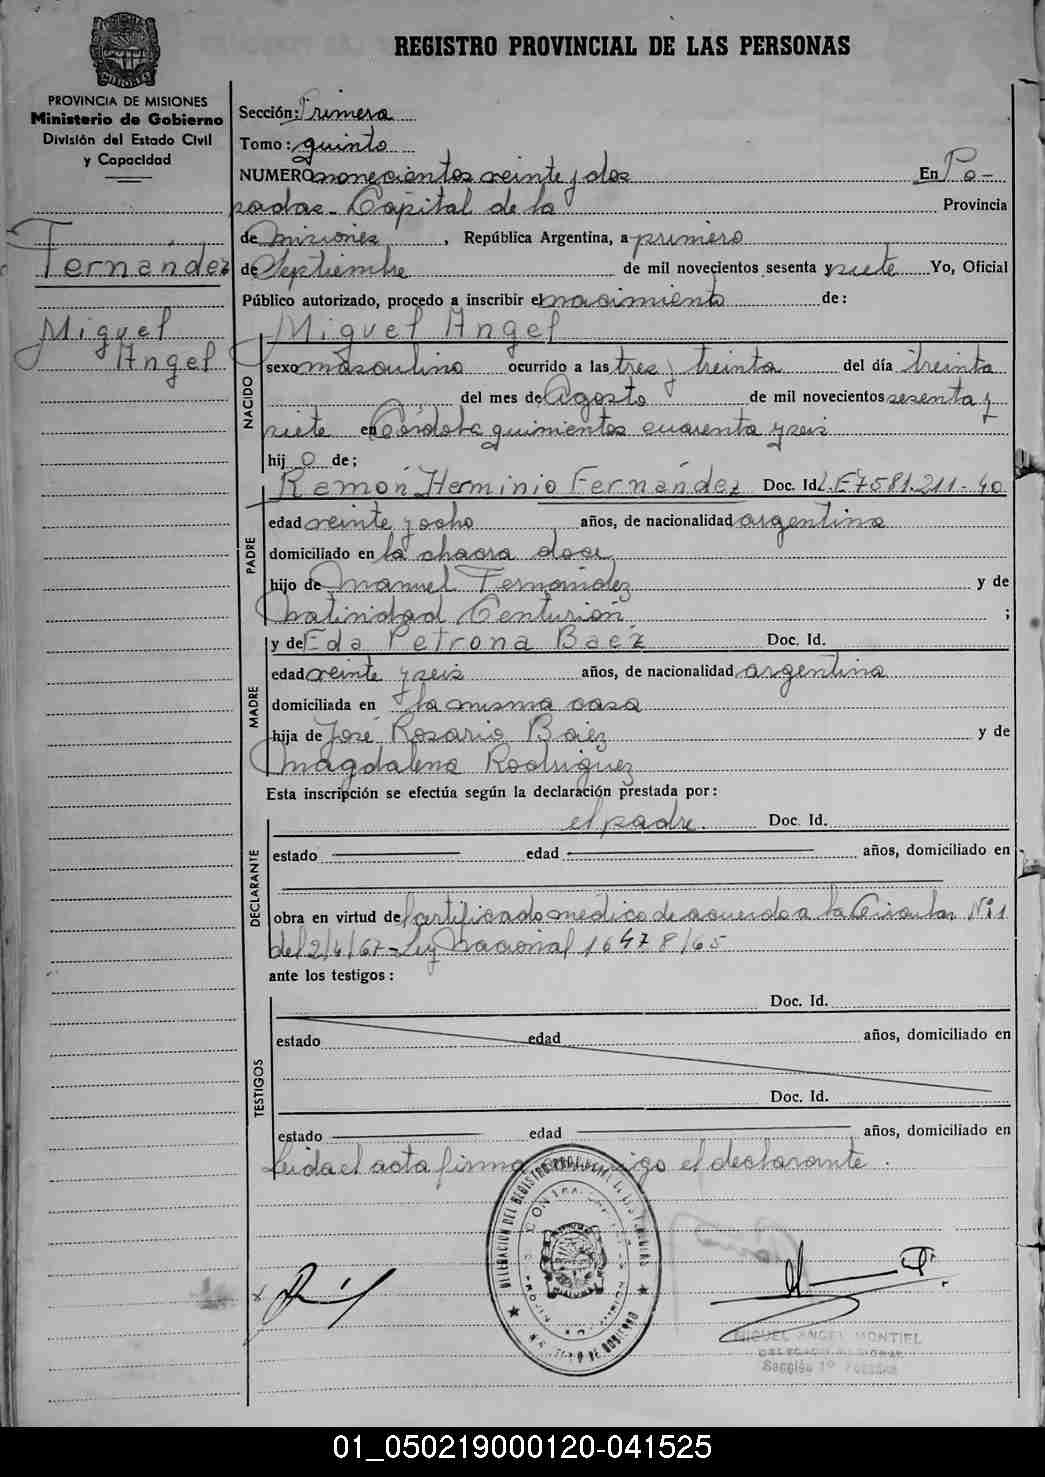 REGISTRO PROVINCIAL DE LAS PERSONAS
MISIONES
PROVINCIA DE MISIONES
Ministerio de Gobierno
División del Estado Civil
y Capacidad
Fernández
Miguel
Angel
Sección: Primera
Tomo: quinto
NUMERO novecientos veinte y dos En Po-
sadas Capital de la Provincia
de Misiones, República Argentina, a primero
de Septiembre de mil novecientos sesenta y siete Yo, Oficial
Público autorizado, procedo a inscribir el nacimiento de:
NACIDO
Miguel Angel
sexo masculino ocurrido a las tres y treinta del día treinta
del mes de Agosto de mil novecientos sesenta y
siete en Córdoba quinientos cuarenta y seis
hij o de;
PADRE
Ramón Herminio Fernández Doc. Id. L.E 7581.211-40
edad veinte y ocho años, de nacionalidad argentina
domiciliado en la chacra doce
hijo de Manuel Fernández y de
Natividad Centurión ;
MADRE
y de Eda Petrona Baéz Doc. Id.
edad veinte y seis años, de nacionalidad argentina
domiciliada en la misma casa
hija de José Rosario Báez y de
Magdalena Rodríguez
Esta inscripción se efectúa según la declaración prestada por:
DECLARANTE
el padre. Doc. Id.
estado edad años, domiciliado en
obra en virtud del certificado médico de acuerdo a la Circular Nº 1
del 2/4/67-Ley Nacional 16478/65
ante los testigos:
TESTIGOS
Doc. Id.
estado edad años, domiciliado en
Doc. Id.
estado edad años, domiciliado en
Leida el acta firma conmigo el declarante.
DELEGACION DEL REGISTRO PROVINCIAL DE LAS PERSONAS
MINISTERIO DE GOBIERNO
MIGUEL ANGEL MONTIEL
Sección 1º
01_050219000120-041525